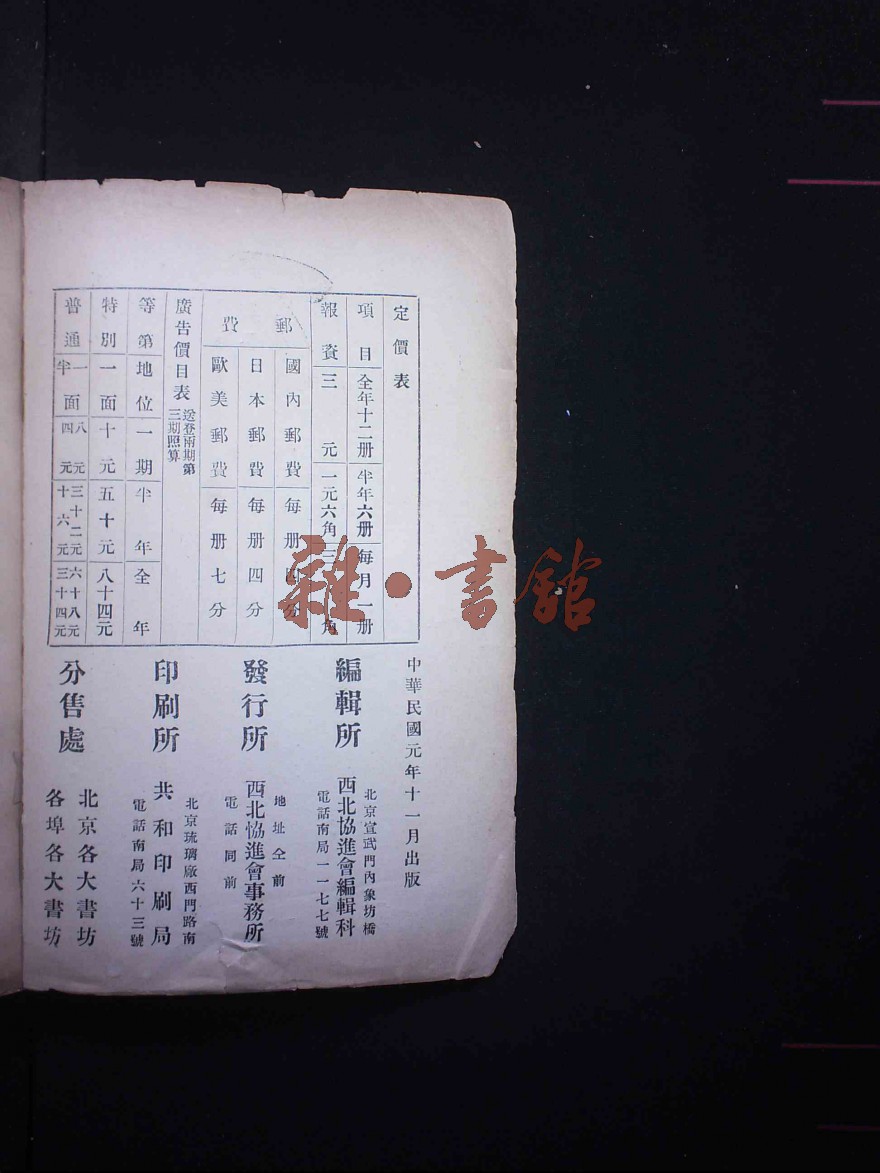 定價表
項目 全年十二册 半年六册 每月一册
報資 三元 一元六角 三角
郵費
國內郵費 每册四分
日本郵費 每册四分
歐美郵費 每册七分
廣告價目表
送登兩期第
三期照算
等第 地位 一期 半年 全年
特別 一面 十元 五十元 八十四元
普通 一面 八元 三十二元 六十八元
半面 四元 十六元 三十四元
中華民國元年十一月出版
編輯所
北京宣武門內象坊橋
西北協進會編輯科
電話南局一一七七號
發行所
地址仝前
西北恊進會事務所
電話同前
印刷所
北京琉璃廠西門路南
共和印刷局
電話南局六十三號
分售處
北京各大書坊
各埠各大書坊
雜·書館